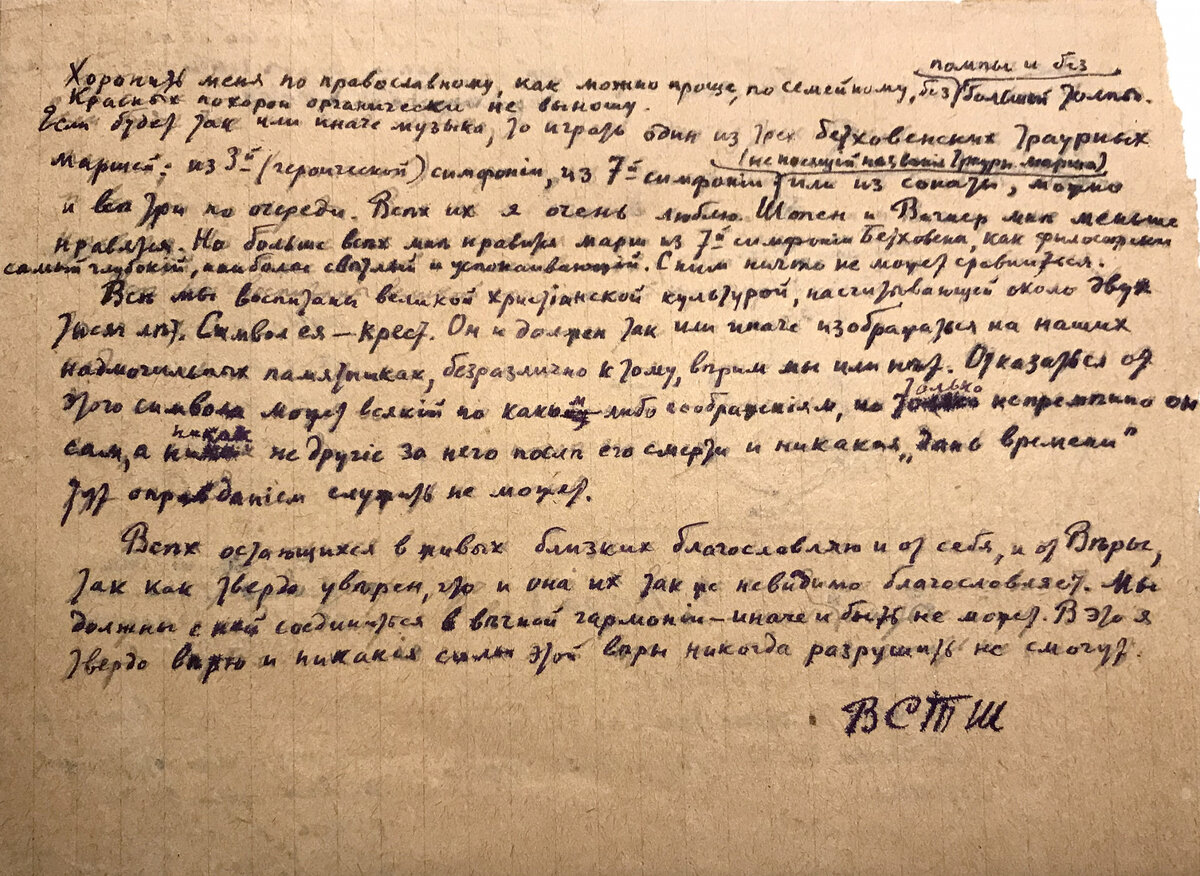 помпы и без
Хоронить меня по православному, как можно проще, по семейному, без большой толпы.
Красных похорон органически не выношу.
Если будет так или иначе музыка, то играть один из трех бетховенских траурных
маршей: из 3й (героической) симфоніи, из 7й симфоніи (не носящей названія траурн. марша) или из сонаты, можно
и всѣ три по очереди. Всѣх их я очень люблю. Шопен и Вагнер мнѣ меньше
нравятся. Но больше всѣх мнѣ нравится марш из 7й симфоніи Бетховена, как философски
самый глубокій, наиболее свѣтлый и успокаивающій. С ним ничто не может сравниться.
Всѣ мы воспитаны великой христіанской культурой, насчитывающей около двух
тысяч лѣт. Символ ея — крест. Он и должен так или иначе изображаться на наших
надмогильных памятниках, безразлично к тому, вѣрим мы или нѣт. Отказаться от
этого символа может всякій по каким-либо соображеніям, но только непремѣнно он
сам, а никак не другіе за него послѣ его смерти и никакая „дань времени"
тут оправданіем служить не может.
Всѣх остающихся в живых близких благословляю и от себя, и от Вѣры,
так как твердо увѣрен, что и она их так же невидимо благословляет. Мы
должны с ней соединиться в вѣчной гармоніи — иначе и быть не может. В это я
твердо вѣрю и никакія силы этой вѣры никогда разрушить не смогут.
ВСТШ